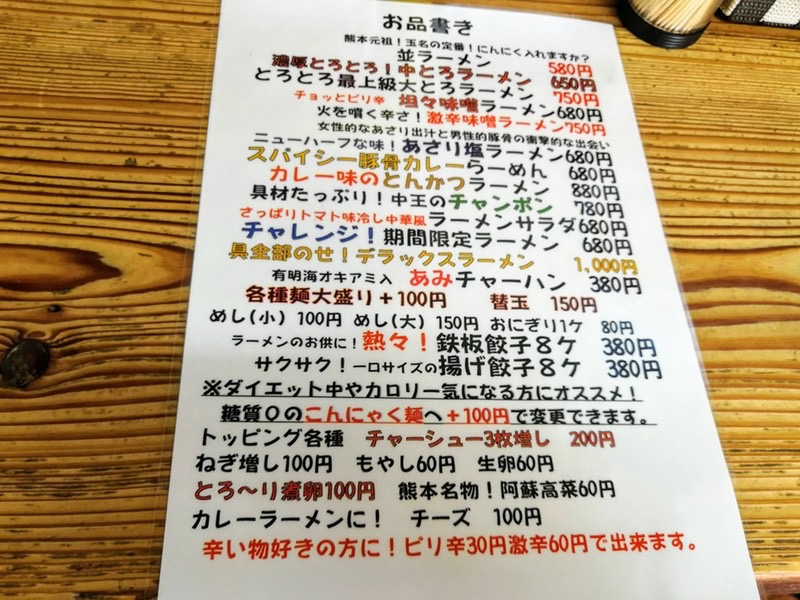 お品書き
熊本元祖！玉名の定番！にんにく入れますか？
並ラーメン 580円
濃厚とろとろ！中とろラーメン 650円
とろとろ最上級大とろラーメン 750円
チョッとピリ辛 坦々味噌ラーメン680円
火を噴く辛さ！激辛味噌ラーメン750円
女性的なあさり出汁と男性的豚骨の衝撃的な出会い
ニューハーフな味！あさり塩ラーメン680円
スパイシー豚骨カレーらーめん 680円
カレー味のとんかつラーメン 880円
具材たっぷり！中王のチャンポン 780円
さっぱりトマト味冷し中華風ラーメンサラダ680円
チャレンジ！期間限定ラーメン 680円
具全部のせ！デラックスラーメン 1,000円
有明海オキアミ入 あみチャーハン 380円
各種麺大盛り＋100円 替玉 150円
めし(小) 100円 めし(大) 150円 おにぎり1ケ 80円
ラーメンのお供に！熱々！鉄板餃子8ケ 380円
サクサク！一口サイズの揚げ餃子8ケ 380円
※ダイエット中やカロリー気になる方にオススメ！
糖質0のこんにゃく麺へ＋100円で変更できます。
トッピング各種 チャーシュー3枚増し 200円
ねぎ増し100円 もやし60円 生卵60円
とろ～り煮卵100円 熊本名物！阿蘇高菜60円
カレーラーメンに！ チーズ 100円
辛い物好きの方に！ピリ辛30円激辛60円で出来ます。